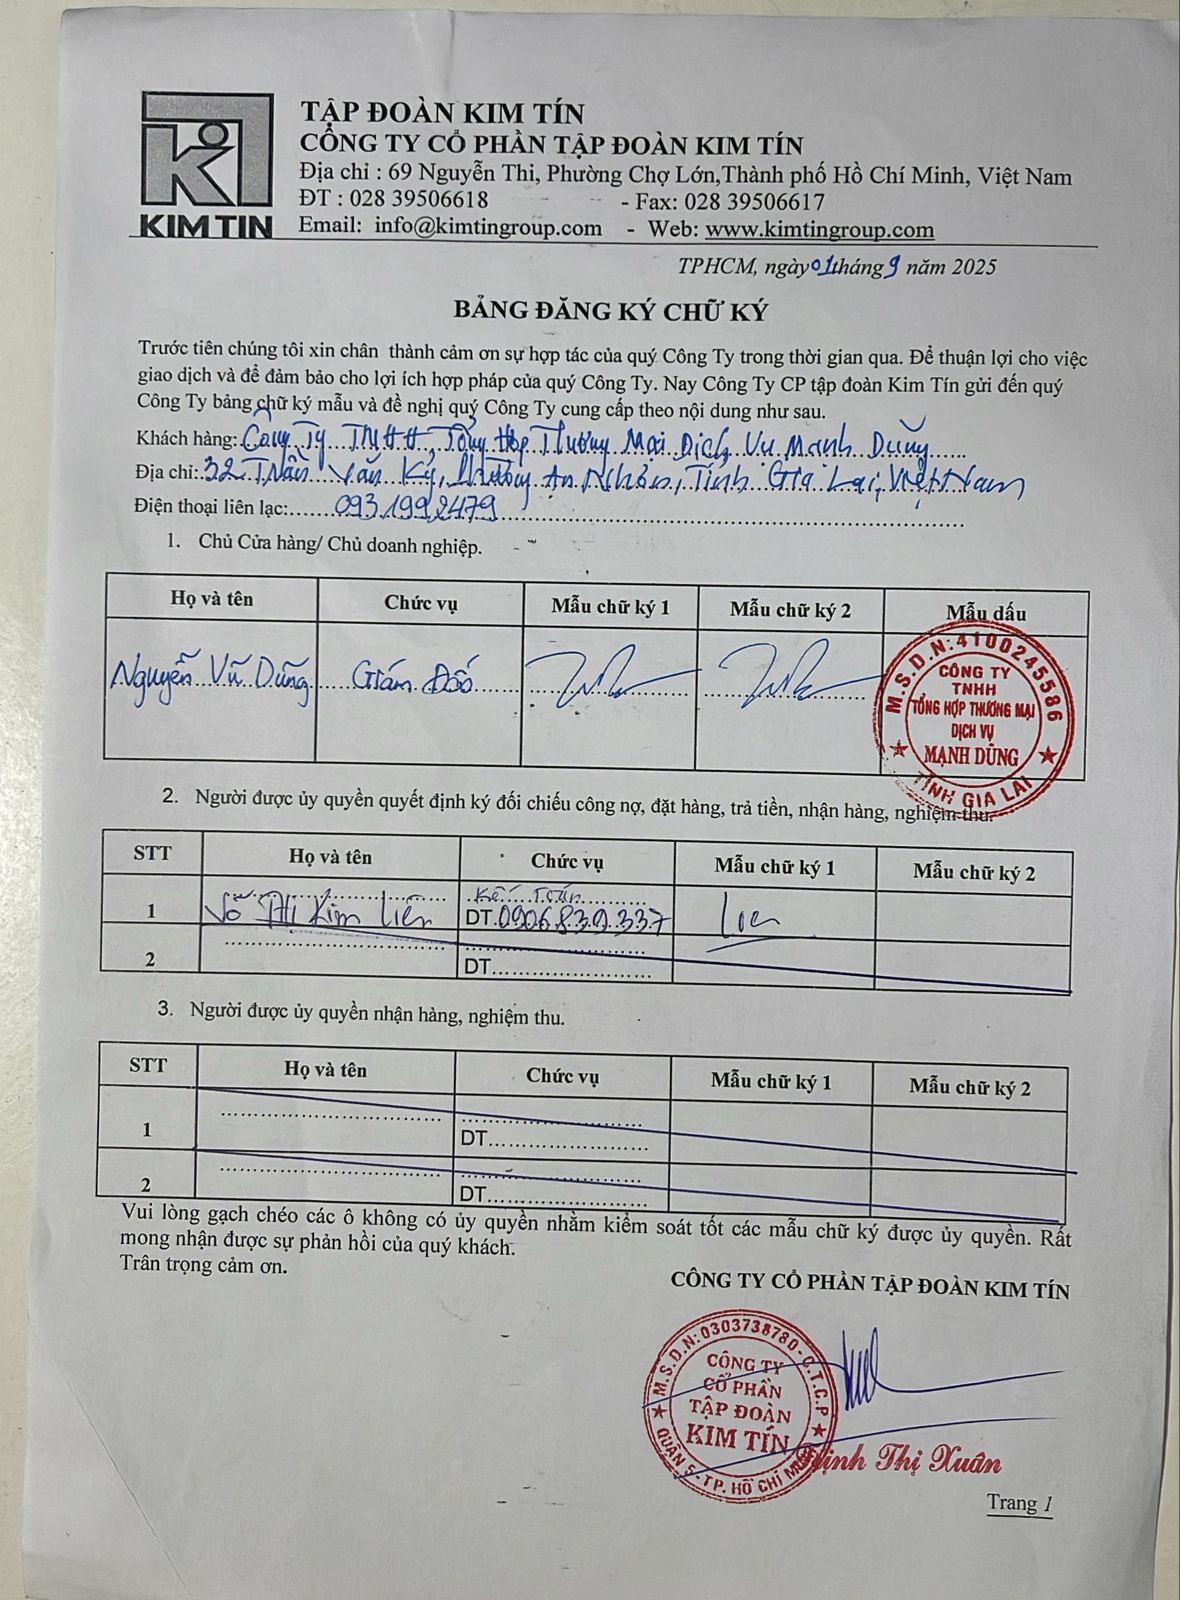 KIM TIN
TẬP ĐOÀN KIM TÍN
CÔNG TY CỔ PHẦN TẬP ĐOÀN KIM TÍN
Địa chỉ : 69 Nguyễn Thi, Phường Chợ Lớn,Thành phố Hồ Chí Minh, Việt Nam
ĐT : 028 39506618 - Fax: 028 39506617
Email: info@kimtingroup.com - Web: www.kimtingroup.com
TPHCM, ngày 01 tháng 9 năm 2025
BẢNG ĐĂNG KÝ CHỮ KÝ
Trước tiên chúng tôi xin chân thành cảm ơn sự hợp tác của quý Công Ty trong thời gian qua. Để thuận lợi cho việc
giao dịch và để đảm bảo cho lợi ích hợp pháp của quý Công Ty. Nay Công Ty CP tập đoàn Kim Tín gửi đến quý
Công Ty bảng chữ ký mẫu và đề nghị quý Công Ty cung cấp theo nội dung như sau.
Khách hàng: Công Ty TNHH Tổng Hợp Thương Mại Dịch Vụ Mạnh Dũng
Địa chỉ: 32 Trần Văn Kỷ, Phường An Nhơn, Tỉnh Gia Lai, Việt Nam
Điện thoại liên lạc: 0931992479
1. Chủ Cửa hàng/ Chủ doanh nghiệp.
Họ và tên Chức vụ Mẫu chữ ký 1 Mẫu chữ ký 2 Mẫu dấu
Nguyễn Vũ Dũng Giám Đốc
M.S.D.N:4100245586
CÔNG TY
TNHH
TỔNG HỢP THƯƠNG MẠI
DỊCH VỤ
MẠNH DŨNG
TỈNH GIA LAI
2. Người được ủy quyền quyết định ký đối chiếu công nợ, đặt hàng, trả tiền, nhận hàng, nghiệm thu.
STT Họ và tên Chức vụ Mẫu chữ ký 1 Mẫu chữ ký 2
1 Võ Thị Kim Liên Kế Toán
DT.0906.839.337 Lien
2
DT
3. Người được ủy quyền nhận hàng, nghiệm thu.
STT Họ và tên Chức vụ Mẫu chữ ký 1 Mẫu chữ ký 2
1
DT
2
DT
Vui lòng gạch chéo các ô không có ủy quyền nhằm kiểm soát tốt các mẫu chữ ký được ủy quyền. Rất
mong nhận được sự phản hồi của quý khách.
Trân trọng cảm ơn.
CÔNG TY CỔ PHẦN TẬP ĐOÀN KIM TÍN
M.S.D.N:0303738780-C.T.C.P
CÔNG TY
CỔ PHẦN
TẬP ĐOÀN
KIM TÍN
QUẬN 5-TP. HỒ CHÍ MINH
Trịnh Thị Xuân
Trang 1